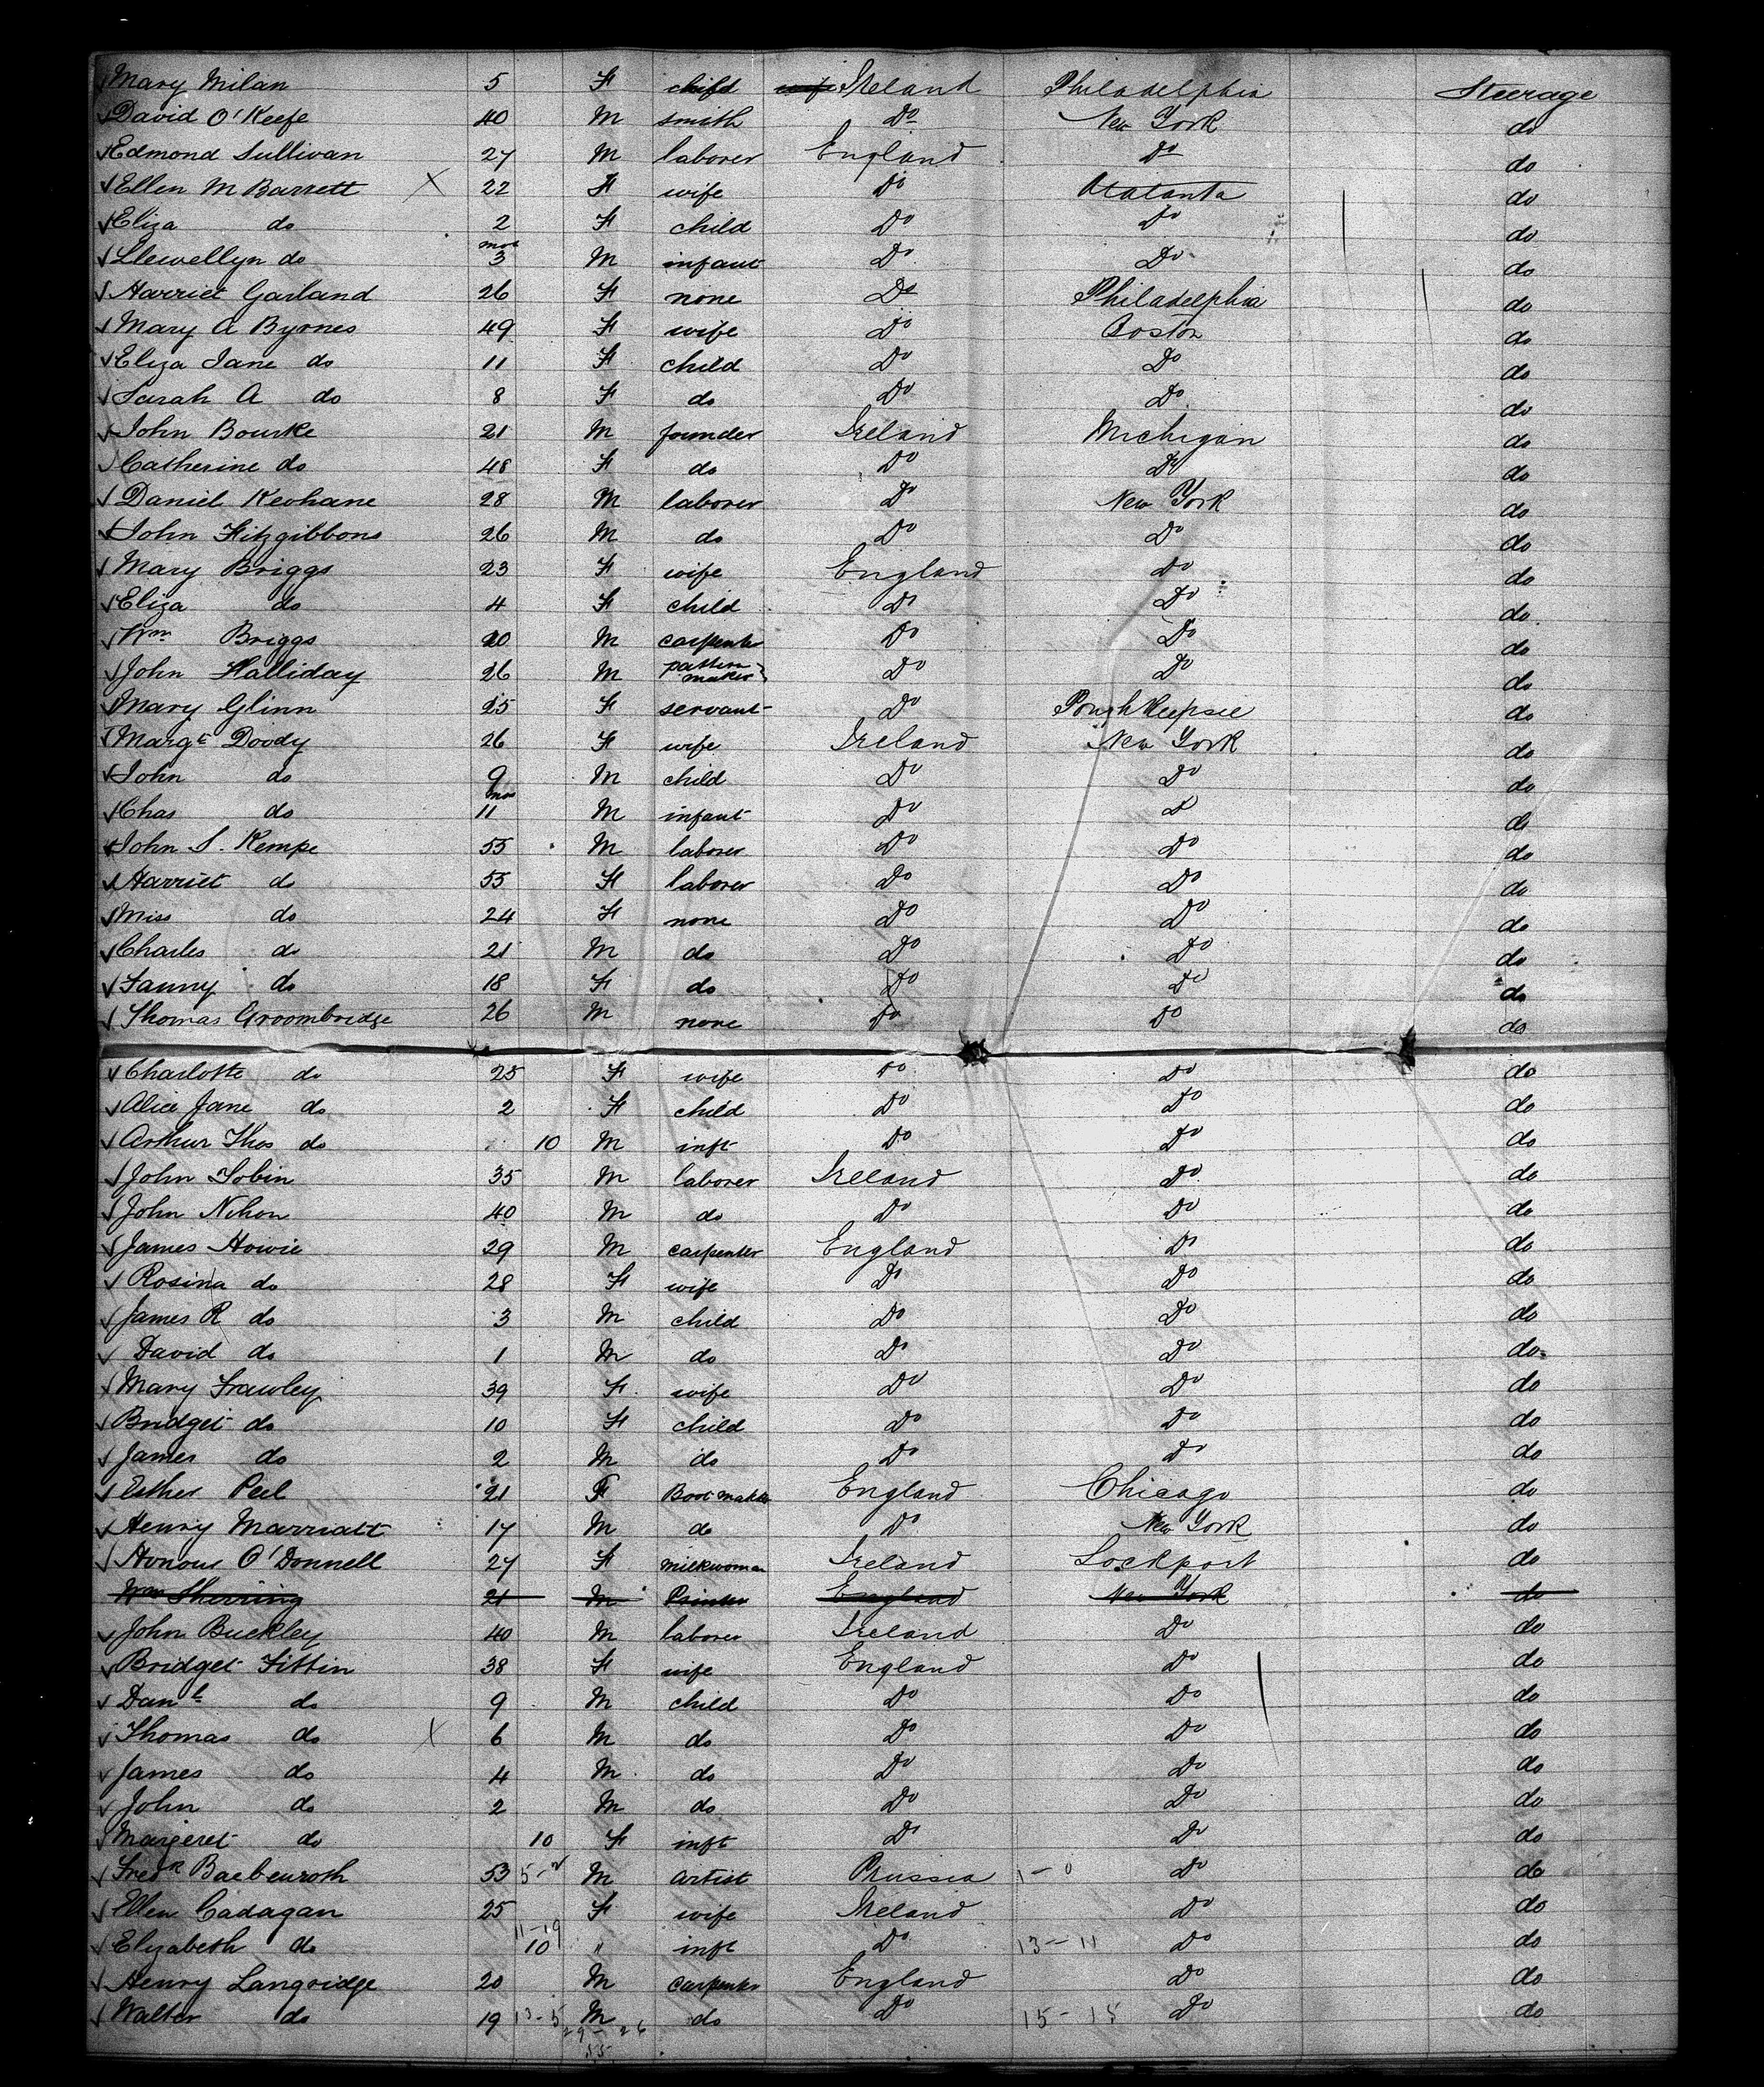 Mary Milan 5 F child wife Ireland Philadelphia Steerage
David O'Keefe 40 M smith Do New York do
Edmond Sullivan 27 M laborer England Do do
Ellen M Barrett X 22 F wife Do Atalanta do
Eliza do 2 F child Do Do do
Llewellyn do mos 3 M infant Do Do do
Harriet Garland 26 F none Do Philadelphia do
Mary A Byrnes 49 F wife Do Boston do
Eliza Jane do 11 F child Do Do do
Sarah A do 8 F do Do Do do
John Bourke 21 M founder Ireland Michigan do
Catherine do 48 F do Do Do do
Daniel Keohane 28 M laborer Do New York do
John Fitzgibbons 26 M do Do Do do
Mary Briggs 23 F wife England Do do
Eliza do 4 F child Do Do do
Wm Briggs 20 M carpenter Do Do do
John Halliday 26 M pattern maker Do Do do
Mary Glinn 25 F servant Do Poughkeepsie do
Margt Doody 26 F wife Ireland New York do
John do 9 M child Do Do do
Chas do mos 11 M infant Do Do do
John S. Kempe 55 M laborer Do Do do
Harriet do 55 F laborer Do Do do
Miss do 24 F none Do Do do
Charles do 21 M do Do Do do
Fanny do 18 F do Do Do do
Thomas Groombridge 26 M none Do Do do
Charlotte do 25 F wife Do Do do
Alice Jane do 2 F child Do Do do
Arthur Thos do 10 M inft Do Do do
John Tobin 35 M laborer Ireland Do do
John Nihon 40 M do Do Do do
James Howie 29 M carpenter England Do do
Rosina do 28 F wife Do Do do
James R do 3 M child Do Do do
David do 1 M do Do Do do
Mary Frawley 39 F wife Do Do do
Bridget do 10 F child Do Do do
James do 2 M do Do Do do
Esther Peel 21 F Boot maker England Chicago do
Henry Marriatt 17 M do Do New York do
Honour O'Donnell 27 F milkwoman Ireland Lockport do
Wm Sherring 21 M Printer England New York do
John Buckley 40 M laborer Ireland Do do
Bridget Fittin 38 F wife England Do do
Danl do 9 M child Do Do do
Thomas do X 6 M do Do Do do
James do 4 M do Do Do do
John do 2 M do Do Do do
Margeret do 10 F inft Do Do do
Fredk Baebenroth 53 5-2 M artist Prussia 1-0 Do do
Ellen Cadagan 25 F wife Ireland Do do
Elizabeth do 11-19 10 " inft Do 13-11 Do do
Henry Langridge 20 M carpenter England Do do
Walter do 19 13-5 M do Do 15-15 Do do
29-26